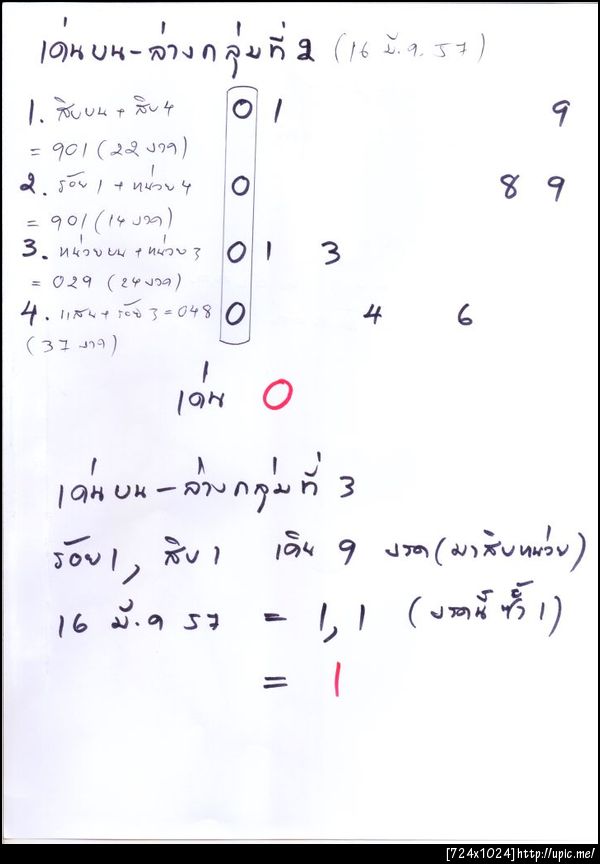 เด่นบน-ล่างกลุ่มที่ 2 (16 มี.ค. 57)
1. สิบบน + สิบ 4 0 1 9
= 901 (22 งวด)
2. ร้อย 1 + หน่วย 4 0 8 9
= 901 (14 งวด)
3. หน่วยบน + หน่วย 3 0 1 3
= 029 (24 งวด)
4. แสน + ร้อย 3 = 048 0 4 6
(37 งวด)
เด่น 0
เด่นบน-ล่างกลุ่มที่ 3
ร้อย 1, สิบ 1 เดิน 9 งวด (มาสิบหน่วย)
16 มี.ค 57 = 1, 1 (งวดนี้ ซ้ำ 1)
= 1
[724x1024]http://upic.me/